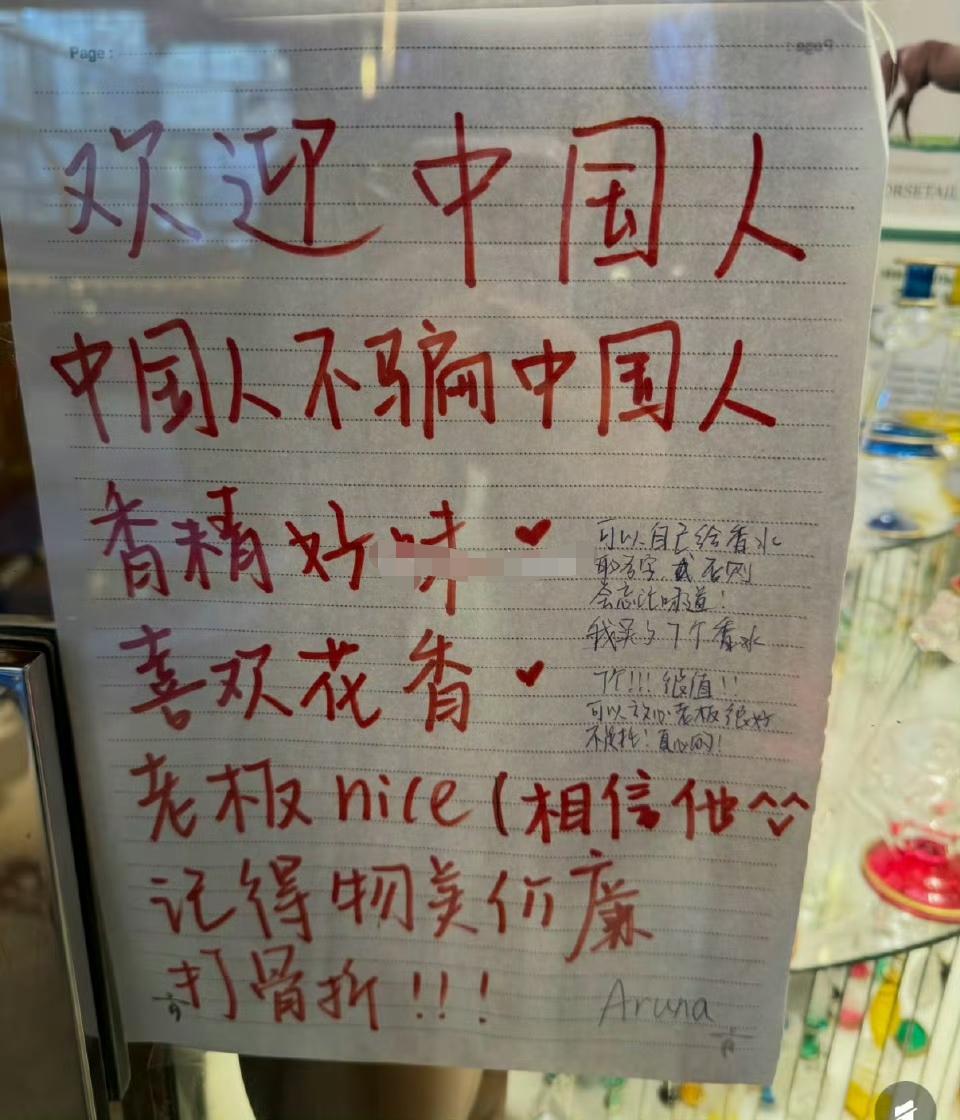 Page:
欢迎中国人
中国人不骗中国人
香精好味♥
喜欢花香♥
可以自己给香水
取名字 或否则
会忘记味道!
我买了7个香水
7个!!! 很值!!
可以 老板很好
不 ! 真心的!
老板nice(相信他^^
记得物美价廉
打骨折!!!
Aruna
ORSETAIL